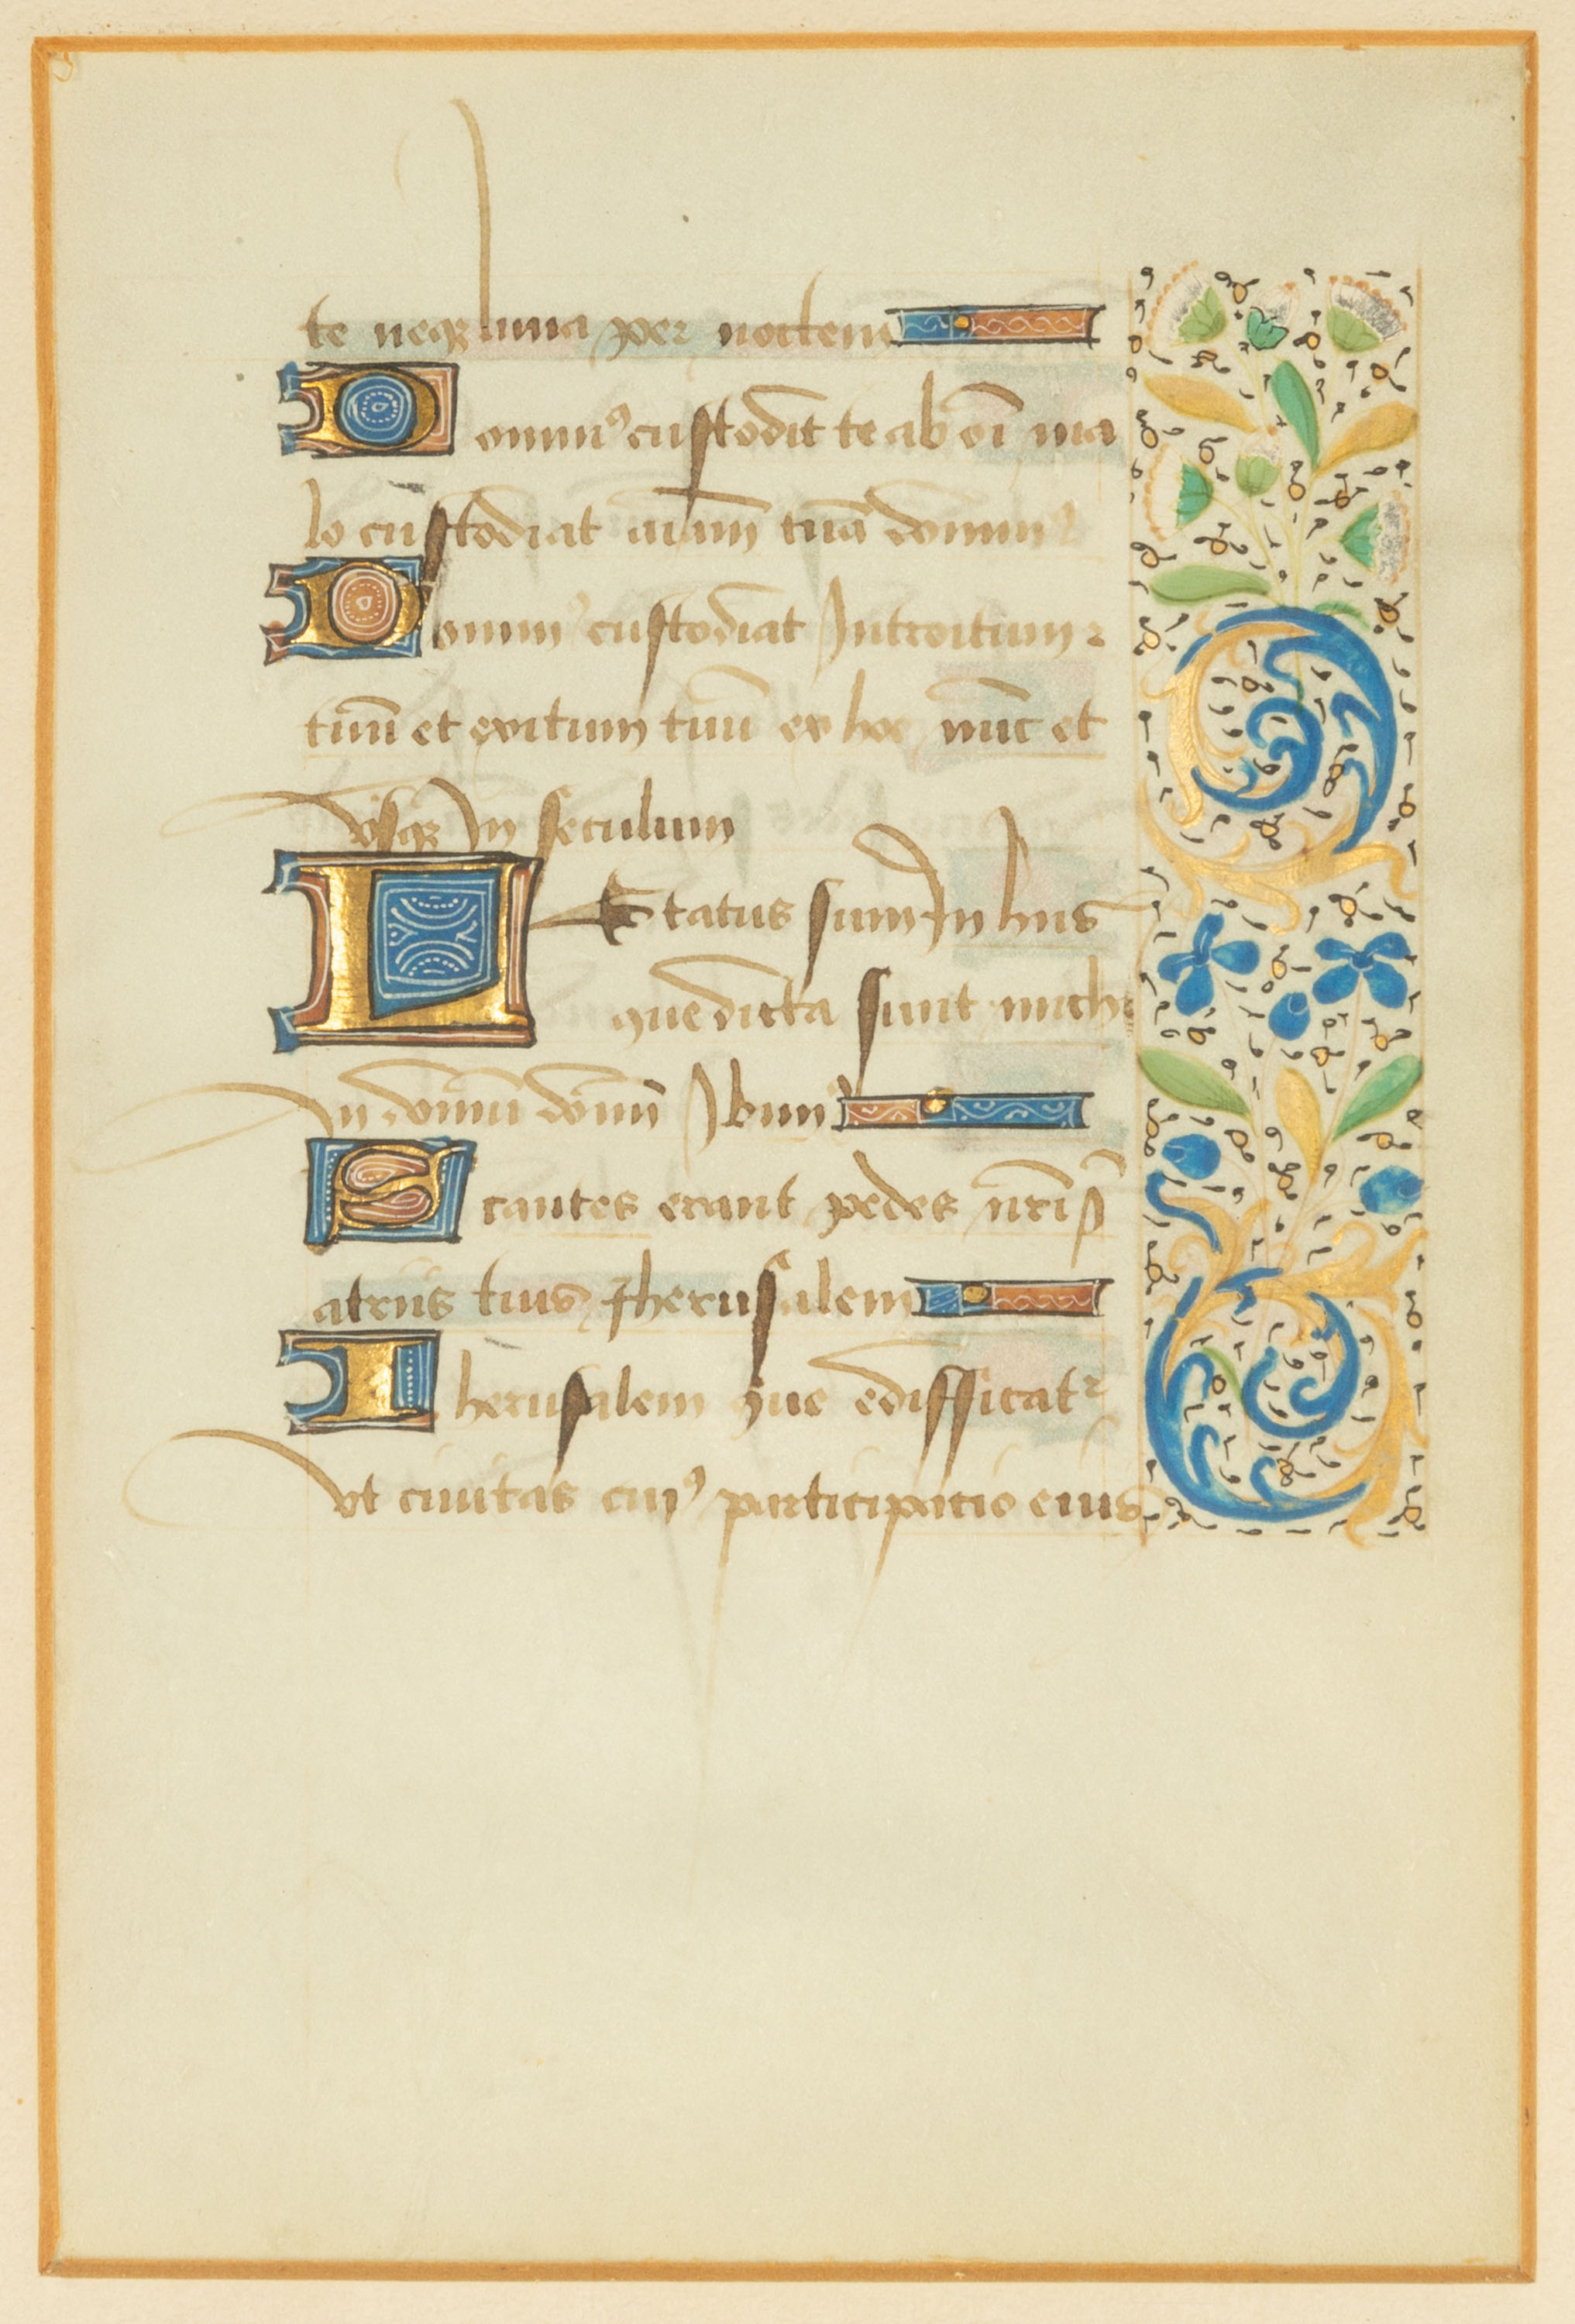 te neqꝫ luna per noctem
Dominꝰ custodit te ab oı̄ ma
lo custodiat aı̄am tuā dominꝰ
Dominꝰ custodiat Introitum
tuū et exitum tuū ex hoc nūc et
vsqꝫ In seculum
LEtatus sum In hiis
que dicta sunt michi
In domū domı̄ Ibimꝰ
Stantes erant pedes nr̄i ı̄
atriis tuis Iherusalem
Iherusalem que edifficatᷣ
vt ciuitas cuiꝰ participacio eius